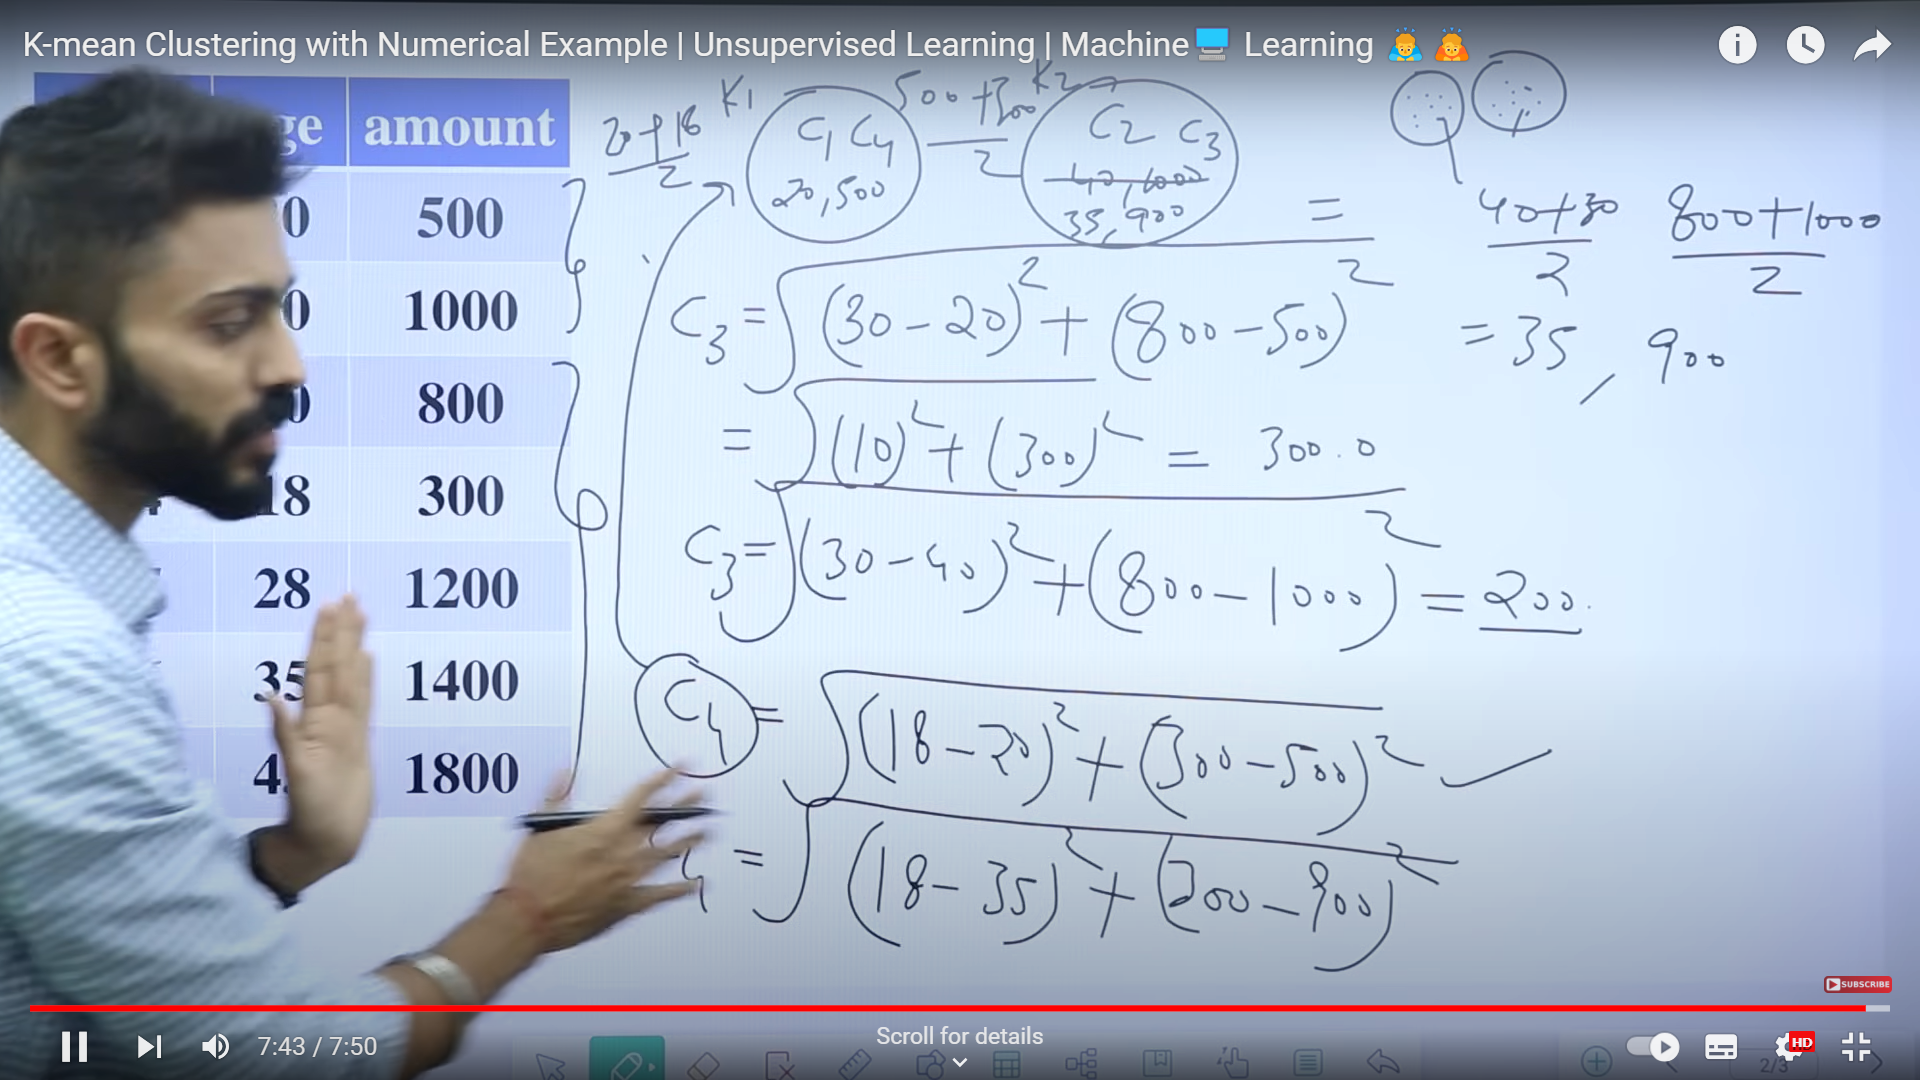 K-mean Clustering with Numerical Example | Unsupervised Learning | Machine🖥️ Learning 🙇🙇
ge amount
0 500
0 1000
0 800
18 300
28 1200
35 1400
4 1800
20+18 / 2
K1
C1 C4
20,500
500+300 / 2
K2
C2 C3
40,1000
35,900
= 40+30 / 2 800+1000 / 2
= 35, 900
C3 = √(30-20)² + (800-500)²
= √(10)² + (300)² = 300.0
C3 = √(30-40)² + (800-1000)² = 200.
C4 = √(18-20)² + (300-500)² ✓
4 = √(18-35)² + (300-900)²
SUBSCRIBE
7:43 / 7:50
Scroll for details
HD
2/3